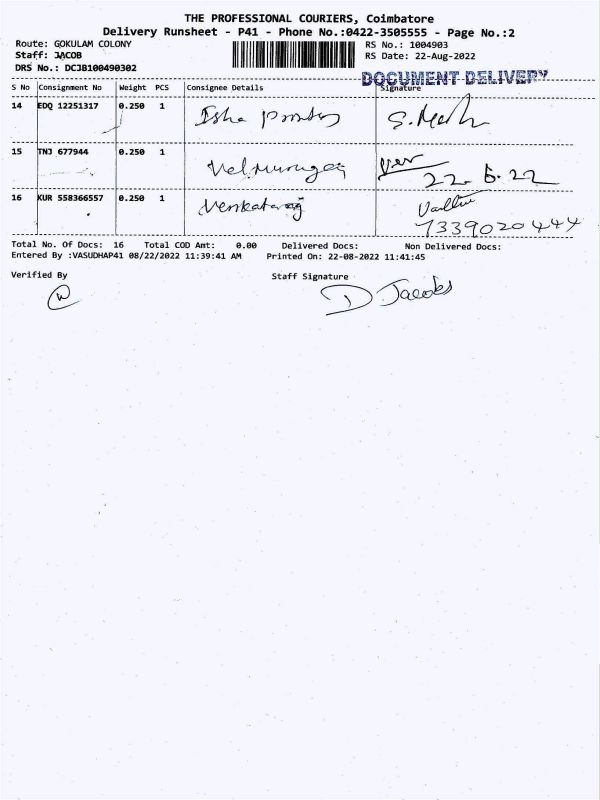 THE PROFESSIONAL COURIERS, Coimbatore
Delivery Runsheet - P41 - Phone No.:0422-3505555 - Page No.:2
Route: GOKULAM COLONY
RS No.: 1004903
Staff: JACOB
RS Date: 22-Aug-2022
DRS No.: DCJB100490302
DOCUMENT DELIVERY
S No Consignment No Weight PCS Consignee Details Signature
14 EDQ 12251317 0.250 1 Isha
15 TNJ 677944 0.250 1 Velmurugan
22.
16 KUR 558366557 0.250 1 Venkataraj
7339020444
Total No. Of Docs: 16 Total COD Amt: 0.00 Delivered Docs: Non Delivered Docs:
Entered By :VASUDHAP41 08/22/2022 11:39:41 AM Printed On: 22-08-2022 11:41:45
Verified By Staff Signature
D Jacobs